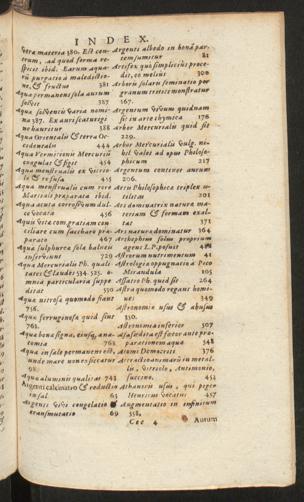 INDEX.
vetra materia 380. Est cen-
trum, ad quod forma re-
spicit ibid. Earum aqua-
rū purgatio à maledictio-
ne, & fructus 381
Aqua permanens sola aurum
solvit 387
Aqua solventis varia nomi-
na 387. Ex auri scaturigi
ne hauritur 388
Aqua Orientalis & terra Oc-
cidentalis 444
Aqua Vermicenis Mercurii
congulat & figit 454
Aqua menstrualis ex vitrio-
li & rosusa 455
Aqua menstrualis cum rore
Mariali praparata ibid.
Aqua acuta corrosivum dul-
ce vocatis 456
Aqua Vita cum gratiam con-
ciliare cum sacchare pra-
parato 467
Aqua sulphurea sola balneis
inserviunt 729
Aqua Mercurialis Ph. quali-
tates & laudes 534. 525. o-
mnia particularia suppe-
ditat 530
Aqua nitrosa quomodo fiant
756.
Aqua ferruginosa quid sint
761.
Aqua bona signa, ejusq, ana-
tomia 763
Aqua in sale permanens est,
unde mare non exsiccatur
Aqua aluminis qualitas 748
Argenti calcinatio & reductio
in sal 63
Argenti vivi congelatio &
transmutatio 69
Argenti albedo in bonā par-
tem sumitur 81
Artifex qui simplicius proce-
dit, eo melius 300
Arboris solaris seminatio per
granum tritici monstratur
367.
Argentum vivum quidnam
sit in arte chymica 176
Arbor Mercurialis quid sit
229.
Arbor Mercurialis Vulg. ni-
hil valet ad opus Philoso-
phicum 217
Argentum continet aurum
206.
Artis Philosophica triplex u-
tilitas 201
Ars dominatrix natura ma-
teriam & formam exal-
tat 371
Ars natura dominatur 364
Archophim solus proprium
agens L. P. posuit 408
Astrorum nutrimentum 41
Astrologia oppugnatio à Pico
Mirandula 105
Assatio Ph. quid sit 264
Astra quomodo regant homi-
nes 349
Astronomia usus & abusus
350.
Astronomia inferior 507
Assafœdita est factor ante pra-
parationem aqua 548
Atomi Democriti 376
Attractio animarū in metal-
lis, vitriolo, Antimonio,
succino, 453
Athanoris usus, qui piger
Henricus vocatus 457
Augmentatio in infinitum
558.
Ccc 4 Aurum